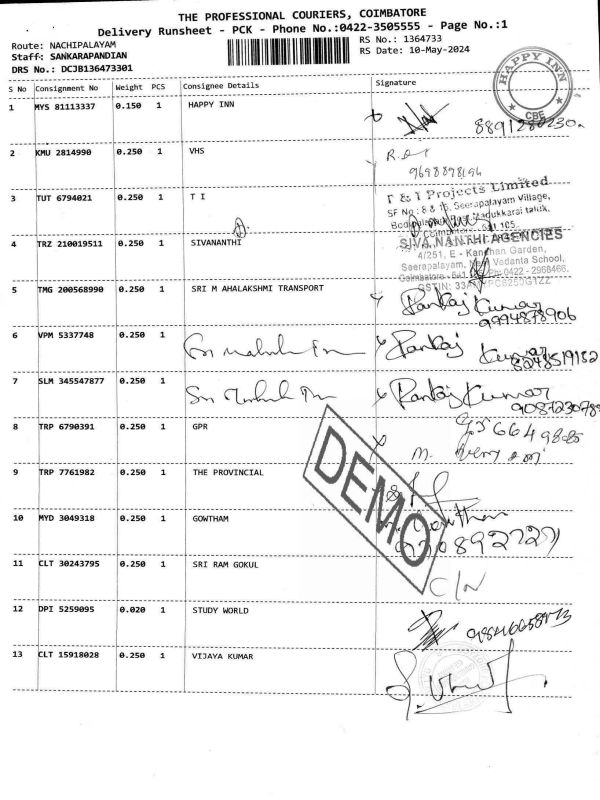 THE PROFESSIONAL COURIERS, COIMBATORE
Delivery Runsheet - PCK - Phone No.:0422-3505555 - Page No.:1
Route: NACHIPALAYAM
RS No.: 1364733
Staff: SANKARAPANDIAN
RS Date: 10-May-2024
DRS No.: DCJB136473301
S No Consignment No Weight PCS Consignee Details Signature
HAPPY INN
CBE
1 MYS 81113337 0.150 1 HAPPY INN
2 KMU 2814990 0.250 1 VHS
3 TUT 6794021 0.250 1 T I
T & I Projects Limited
Seerapalayam Village,
Madukkarai taluk,
4 TRZ 210019511 0.250 1 SIVANANTHI
SIVANANTHI AGENCIES
4/251, E - Kanchan Garden,
Seerapalayam, Vedanta School,
Ph:0422 - 2968466.
5 TMG 200568990 0.250 1 SRI M AHALAKSHMI TRANSPORT
Pankaj Kumar
9994878906
6 VPM 5337748 0.250 1
Pankaj Kumar
8248519182
7 SLM 345547877 0.250 1
Pankaj Kumar
8 TRP 6790391 0.250 1 GPR
9 TRP 7761982 0.250 1 THE PROVINCIAL
DEMO
10 MYD 3049318 0.250 1 GOWTHAM
Gowtham
11 CLT 30243795 0.250 1 SRI RAM GOKUL
12 DPI 5259095 0.020 1 STUDY WORLD
13 CLT 15918028 0.250 1 VIJAYA KUMAR